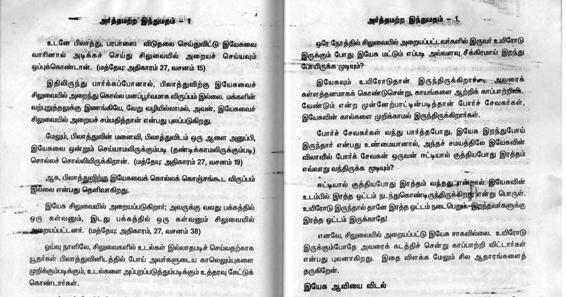 அர்த்தமற்ற இந்துமதம் - 1
உடனே பிலாத்து, பரபாசை விடுதலை செய்துவிட்டு இயேசுவை
வாரினால் அடிக்கச் செய்து சிலுவையில் அறையச் செய்யவும்
ஒப்புக்கொண்டான். (மத்தேயு: அதிகாரம் 27, வசனம் 15)
இதிலிருந்து பார்க்கப்போனால், பிலாத்துவிற்கு இயேசுவைச்
சிலுவையில் அறைந்து கொல்ல மனப்பூர்வமாக விருப்பம் இல்லை. மக்களின்
வற்புறுத்தலுக்கு இணங்கியே, வேறு வழியில்லாமல், அவன், இயேசுவைச்
சிலுவையில் அறையச் சம்மதித்தான் என்பது புலப்படுகிறது.
மேலும், பிலாத்துவின் மனைவி, பிலாத்துவிடம் ஒரு ஆளை அனுப்பி,
இயேசுவை ஒன்றும் செய்யாமலிருக்கும்படி (தண்டிக்காமலிருக்கும்படி)
சொல்லச் சொல்லியிருக்கிறாள். (மத்தேயு: அதிகாரம் 27, வசனம் 19)
ஆக, பிலாத்துவிற்கு இயேசுவைக் கொல்லக் கொஞ்சங்கூட விருப்பம்
இல்லை என்பது தெளிவாகிறது.
இயேசு சிலுவையில் அறையப்படுகிறார்; அவருக்கு வலது பக்கத்தில்
ஒரு கள்வனும், இடது பக்கத்தில் ஒரு கள்வனும் சிலுவையில்
அறையப்பட்டனர். (மத்தேயு: அதிகாரம், 27, வசனம் 38)
ஓய்வு நாளிலே, சிலுவைகளில் உடல்கள் இல்லாதபடி செய்வதற்காக
யூதர்கள் பிலாத்துவினிடத்தில் போய் அவர்களுடைய காலெலும்புகளை
முறிக்கும்படிக்கும், உடல்களை அப்புறப்படுத்தும்படிக்கும் உத்தரவு கேட்டுக்
கொண்டார்கள்.
அர்த்தமற்ற இந்துமதம் - 1
ஒரே நேரத்தில் சிலுவையில் அறையப்பட்டவர்களில் இருவர் உயிரோடு
இருக்கும் போது இயேசு மட்டும் எப்படி அவ்வளவு சீக்கிரமாய் இறந்து
போயிருக்க முடியும்?
இயேசுவும் உயிரோடுதான் இருந்திருக்கிறார். அவரைக்
கள்ளத்தனமாகக் கொண்டுசென்று, காயங்களை ஆற்றிக் காப்பாற்றிவிட
வேண்டும் என்ற முன்னேற்பாட்டின்படித்தான் போர்ச் சேவகர்கள்,
இயேசுவின் கால்களை முறிக்காமல் இருந்திருக்கிறார்கள்.
போர்ச் சேவகர்கள் வந்து பார்த்தபோது, இயேசு இறந்துபோய்
இருந்தார் என்பது உண்மையானால், அந்தச் சமயத்திலே இயேசுவின்
விலாவில் போர்ச் சேவகன் ஒருவன் ஈட்டியால் குத்தியபோது இரத்தம்
எவ்வாறு வந்திருக்க முடியும்?
ஈட்டியால் குத்தியபோது இரத்தம் வந்தது என்றால் இயேசுவின்
உடம்பில் இரத்த ஓட்டம் நடந்துகொண்டிருந்திருக்கிறது என்று பொருள்.
உயிரோடு இருந்தால் தானே இரத்த ஓட்டம் நடைபெறும். இறந்தவர்களுக்கு
இரத்த ஓட்டம் இருக்காதே!
எனவே, சிலுவையில் அறையப்பட்டு இயேசு சாகவில்லை. உயிரோடு
இருக்கும்போதே அவரைக் கடத்திச் சென்று காப்பாற்றி விட்டார்கள்
என்பது புலனாகிறது. இதை விளக்க மேலும் சில ஆதாரங்களைத்
தருகிறேன்.
இயேசு ஆவியை விடல்